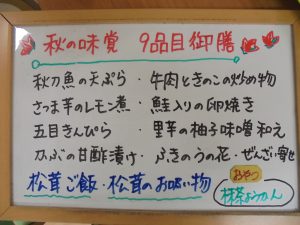 秋の味覚 9品目御膳
秋刀魚の天ぷら・牛肉ときのこの炒め物
さつま芋のレモン煮・鮭入りの卵焼き
五目きんぴら・里芋の柚子味噌和え
かぶの甘酢漬け・ふきのうの花・ぜんざい寄せ
松茸ご飯・松茸のお吸い物
おやつ
抹茶ようかん